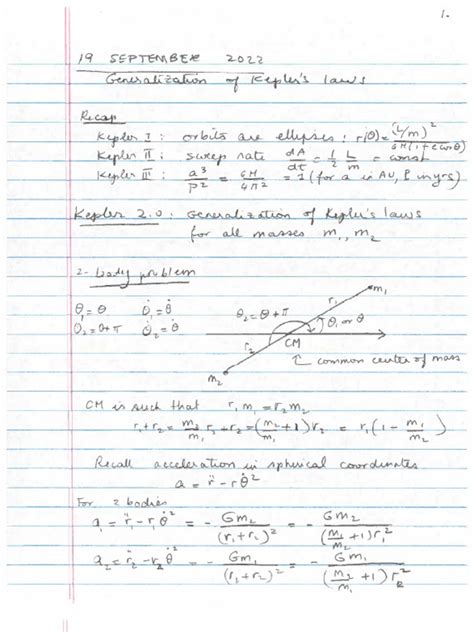 1.
19 SEPTEMBER 2022
Generalization of Kepler's laws
Recap
Kepler I : orbits are ellipses : r(θ) = (L/m)² / GM(1+e cos θ)
Kepler II : sweep rate dA/dt = 1/2 L/m = const
Kepler III : a³/P² = GM/4π² = 1 (for a in AU, P in yrs)
Kepler 2.0 : Generalization of Kepler's laws
for all masses m₁, m₂
2-body problem
θ₁ = θ θ̇₁ = θ̇
θ₂ = θ+π θ̇₂ = θ̇
θ₂ = θ+π r₁ m₁
θ₁ or θ
r₂ CM
m₂ common center of mass
CM is such that r₁m₁ = r₂m₂
r₁+r₂ = m₂/m₁ r₂ + r₂ = (m₂/m₁ + 1) r₂ = r₁(1 - m₁/m₂)
Recall acceleration in spherical coordinates
a = r̈ - rθ̇²
For 2 bodies
a₁ = r̈₁ - r₁θ̇² = - Gm₂/(r₁+r₂)² = - Gm₂/(m₁/m₂ + 1)r₁²
a₂ = r̈₂ - r₂θ̇² = - Gm₁/(r₁+r₂)² = - Gm₁/(m₂/m₁ + 1)r₂²